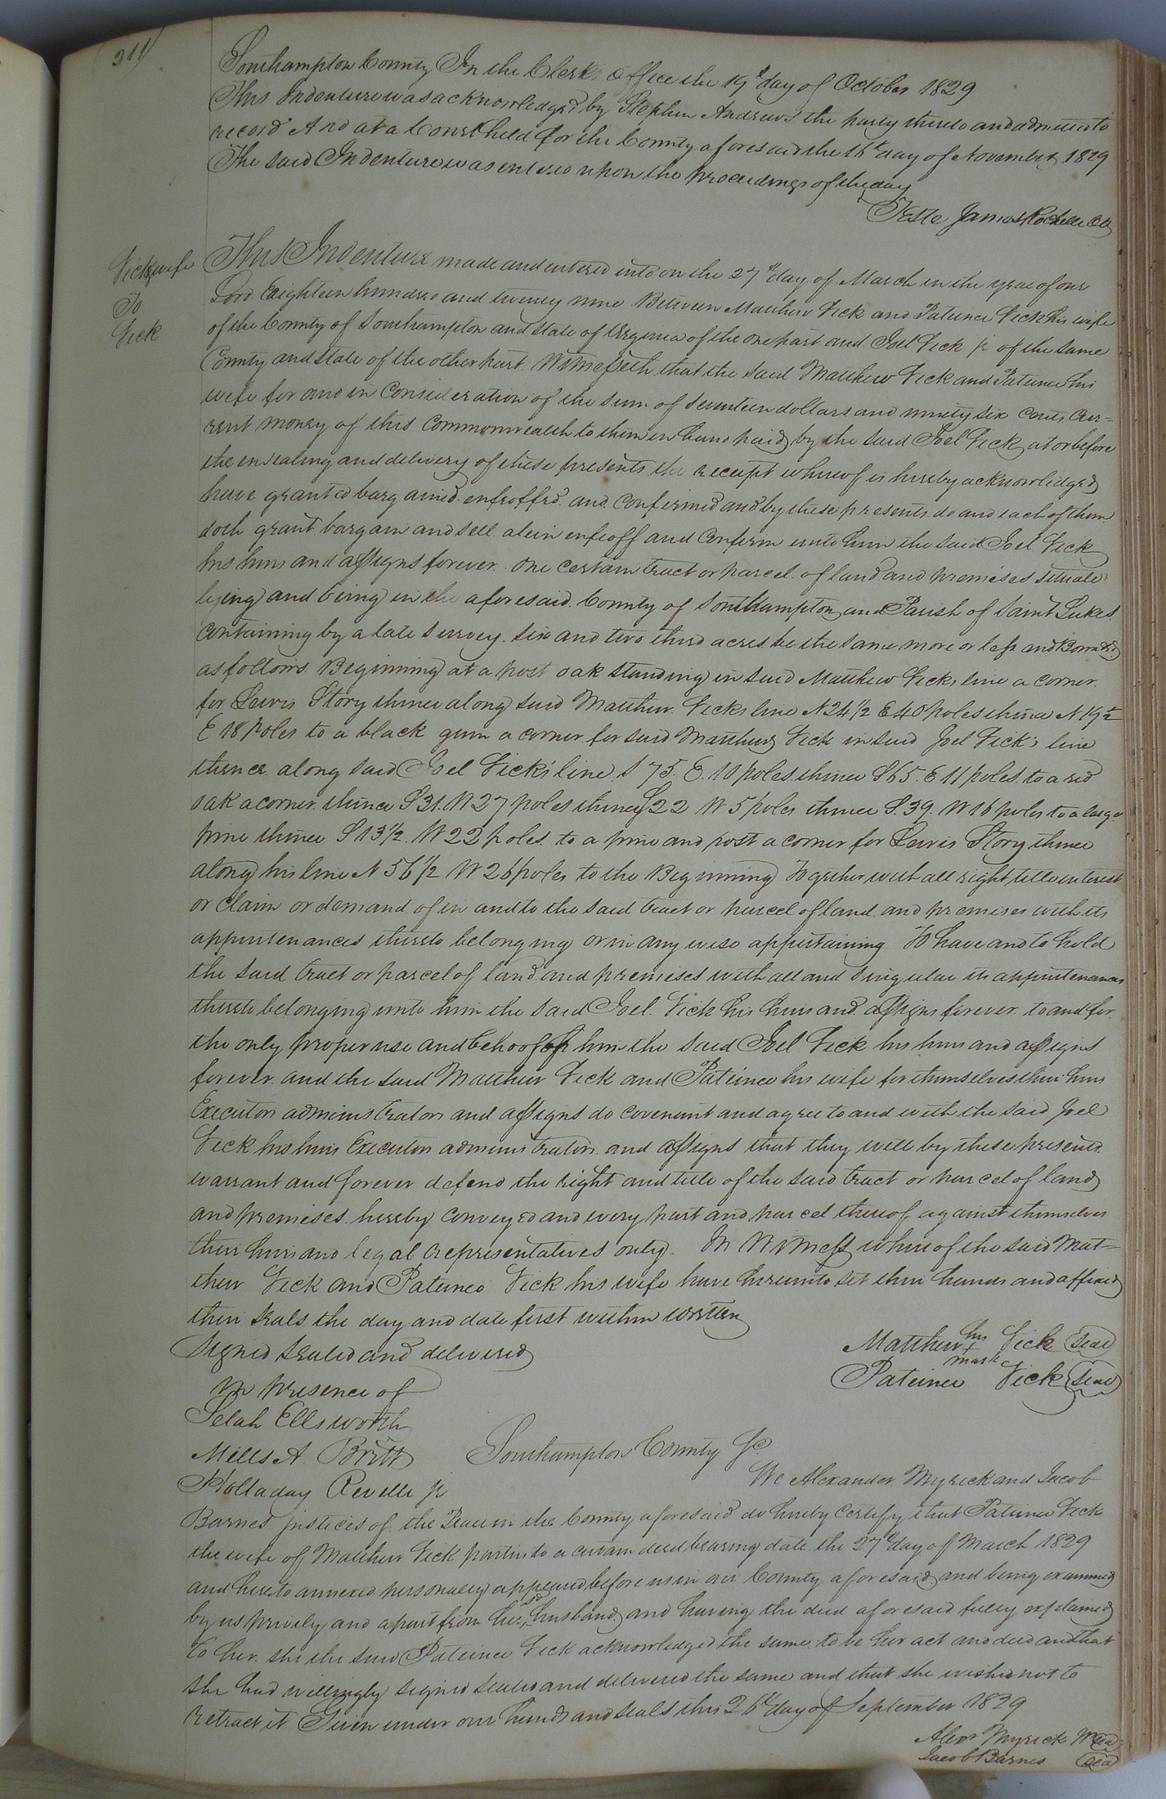 211
Southampton County In the Clerks office the 19th day of October 1829
This Indenture was acknowledged by Stephen Andrews the party thereto and admitted to
record And at a Court held for the County aforesaid the 16th day of November 1829
The said Indenture was entered upon the proceedings of the day
Teste James Rochelle
Vick & wife
To
Vick
This Indenture made and entered into on the 27th day of March in the year of our
Lord Eighteen hundred and twenty nine Between Matthew Vick and Patience Vick his wife
of the County of Southampton and state of Virginia of the one part and Joel Vick jr of the same
County and state of the other part. Witnesseth that the said Matthew Vick and Patience his
wife for and in consideration of the sum of Seventeen dollars and ninety six cents cur=
rent money of this Commonwealth to them in hand paid by the said Joel Vick at or before
the ensealing and delivery of these presents the receipt whereof is hereby acknowledged
have granted bargained enfeoffed and confirmed and by these presents do and each of them
doth grant bargain and sell alein enfeoff and Confirm unto him the said Joel Vick
his heirs and assigns forever. One certain tract or parcel of land and premises situate
lying and being in the aforesaid County of Southampton and Parish of Saint Lukes
Containing by a late survey six and two third acres be the same more or less and Bounded
as follows Beginning at a post oak standing in said Matthew Vicks line a corner
for Lewis Story thence along said Matthew Vicks line N 24 1/2 E 40 poles thence N 19 1/2
E 18 Poles to a black gum a corner for said Matthew Vick in said Joel Vick's line
thence along said Joel Vicks' line S 75. E. 10 poles thence S 65. E 11 poles to a red
oak a corner thence S 31. W 27 poles thence S 22 W 5 poles thence S. 39. W 16 poles to a large
pine thence S 13 1/2. W 22 poles to a pine and post a corner for Lewis Story thence
along his line N 56 1/2 W 26 poles to the Beginning Together with all right title interest
or claim or demand of in and to the said tract or parcel of land and premises with its
appurtenances thereto belonging or in any wise appertaining To have and to hold
the said tract or parcel of land and premises with all and singular its appurtenances
thereto belonging unto him the said Joel Vick his heirs and assigns forever to and for
the only proper use and behoof of him the said Joel Vick his heirs and assigns
forever. and the said Matthew Vick and Patience his wife for themselves their heirs
Executors administrators and assigns do covenant and agree to and with the said Joel
Vick his heirs Executors administrators and assigns that they will by these presents
warrant and forever defend the right and title of the said tract or parcel of land
and premises hereby conveyed and every part and parcel thereof against themselves
their heirs and legal representatives only. In Witness whereof the said Mat=
thew Vick and Patience Vick his wife have hereunto set their hands and affixed
their seals the day and date first within written
Signed sealed and delivered
in presence of
Matthew his Vick (seal)
X mark
Patience Vick (seal)
Selah Ellsworth
Mills A. Britt
Holladay Revelle jr
Southampton County Sc.
We Alexander Myrick and Jacob
Barnes justices of the Peace in the County aforesaid do hereby certify that Patience Vick
the wife of Matthew Vick parties to a certain deed bearing date the 27th day of March 1829
and hereto annexed personally appeared before us in our County aforesaid and being examined
by us privily and apart from her sd husband and having the deed aforesaid fully explained
to her. she the said Patience Vick acknowledged the same to be her act and deed and that
she had willingly signed sealed and delivered the same and that she wished not to
retract it Given under our hands and seals this 26th day of September 1829
Alexr Myrick
Jacob Barnes